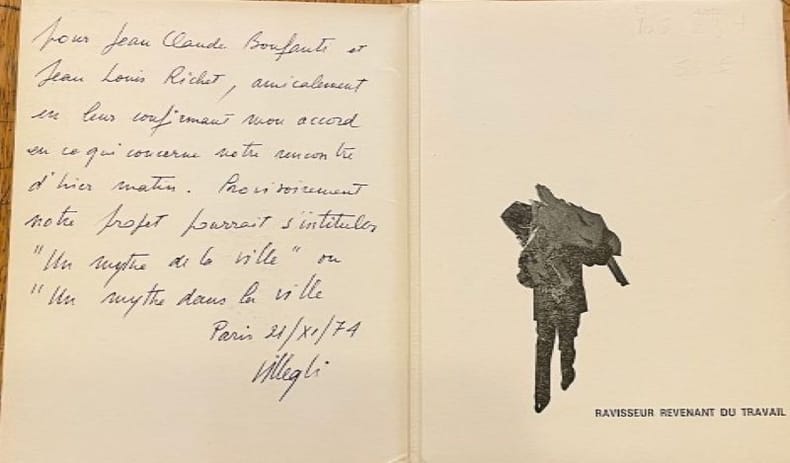 pour Jean Claude Bonfanti et
Jean Louis Richet, amicalement
en leur confirmant mon accord
en ce qui concerne notre rencontre
d'hier matin. Provisoirement
notre projet pourrait s'intituler
"Un mythe de la ville" ou
"Un mythe dans la ville
Paris 21/XI/74
Villeglé
RAVISSEUR REVENANT DU TRAVAIL